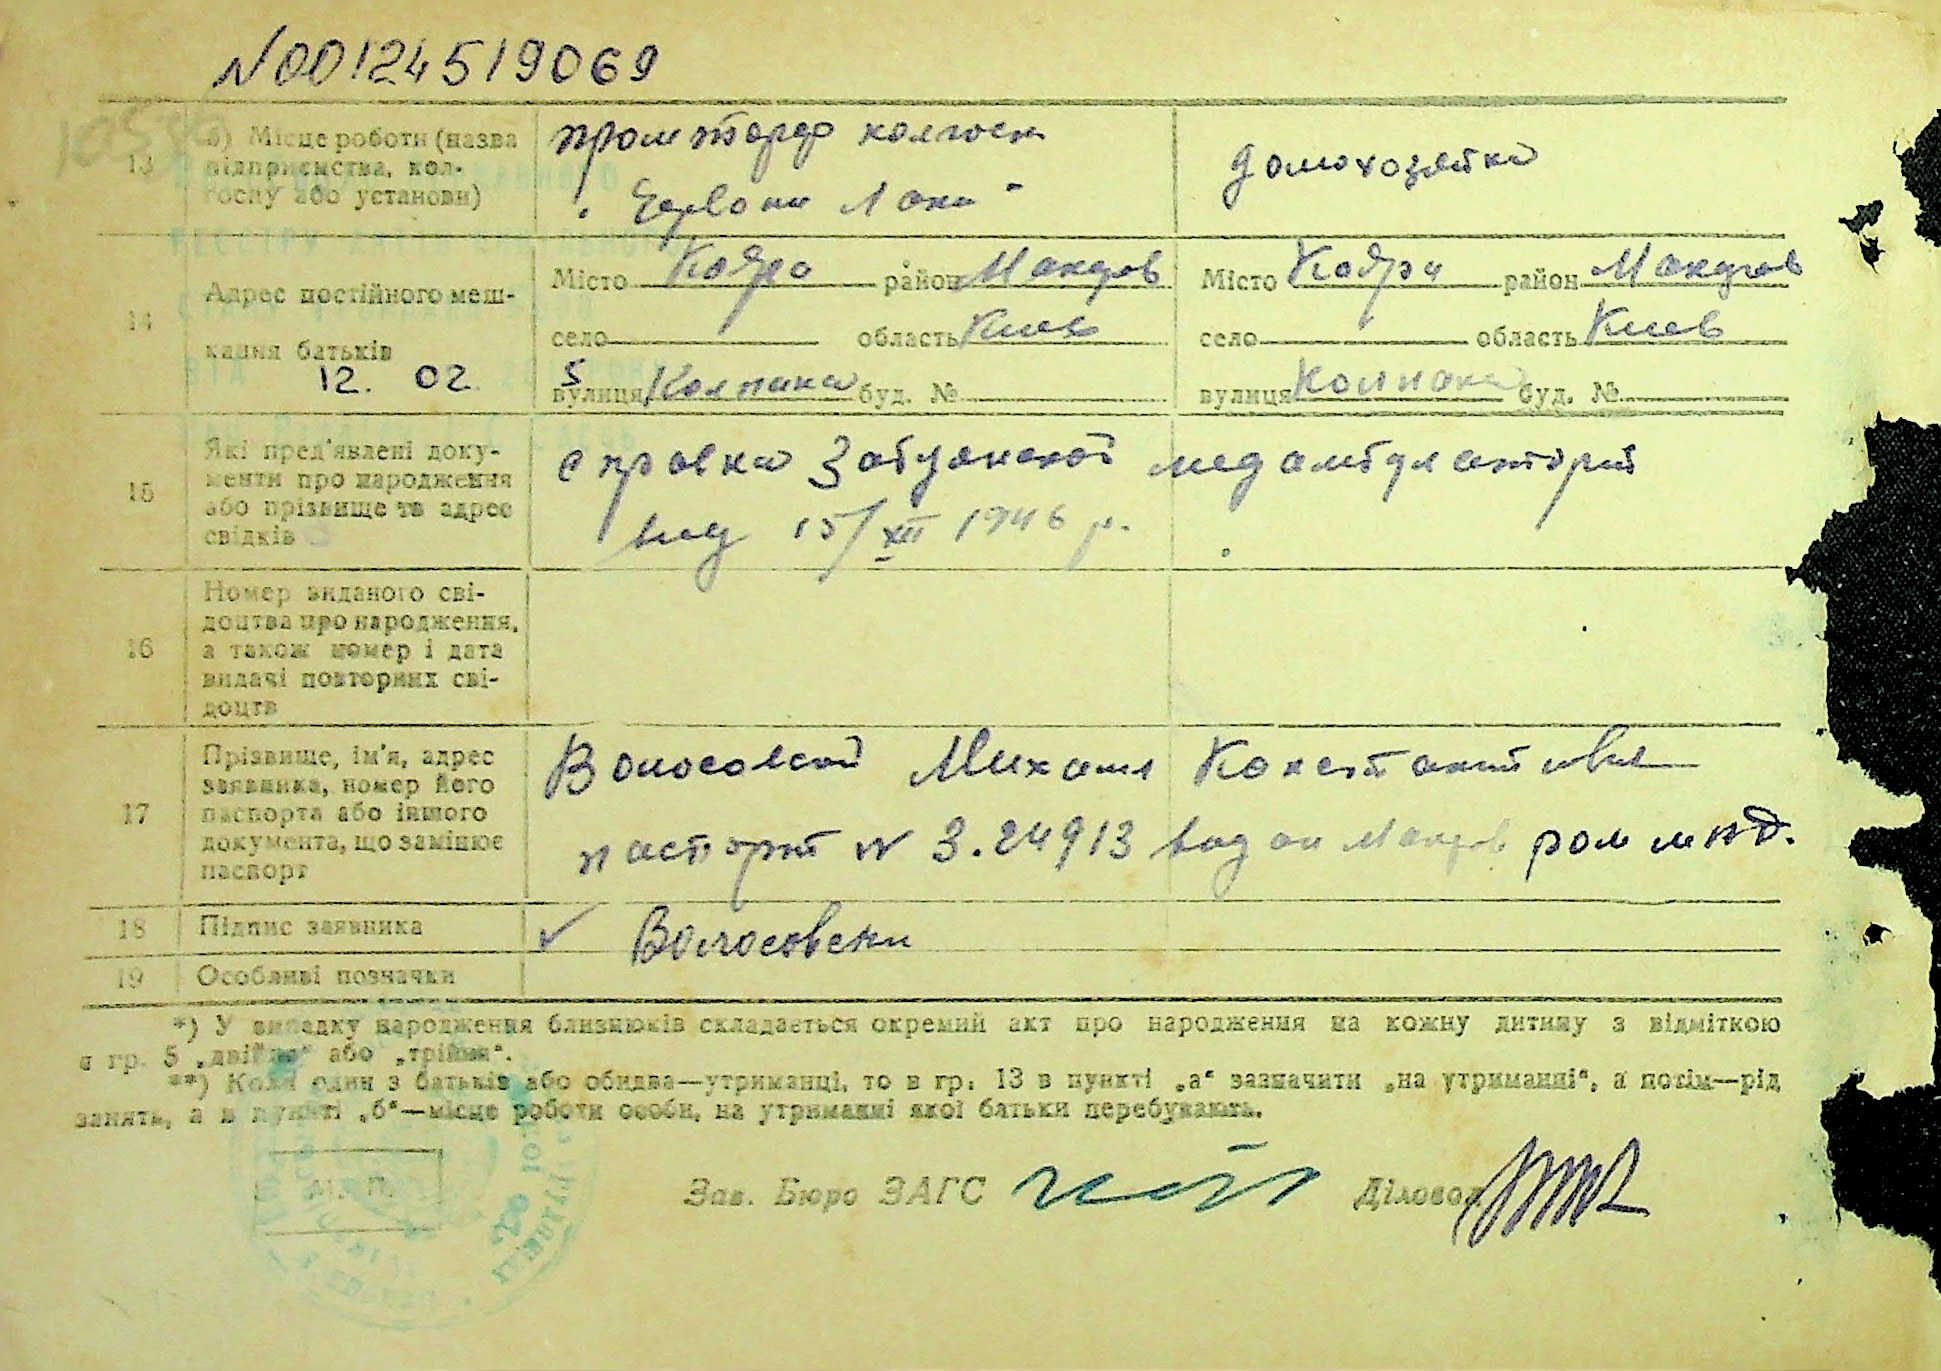 N00124519069
13 б) Місце роботи (назва підприємства, кол-
госпу або установи)
колгосп
домохозяйка
14 Адрес постійного меш-
кання батьків
12. 02
Місто район Макаров
село область Киев
вулиця буд. №
Місто район Макаров
село область Киев
вулиця буд. №
15 Які пред'явлені доку-
менти про народження
або прізвище та адрес
свідків
справка медамбулаторий
від 15/XII 1946 р.
16 Номер виданого сві-
доцтва про народження,
а також номер і дата
видачі повторних сві-
доцтв
17 Прізвище, ім'я, адрес
заявника, номер його
паспорта або іншого
документа, що замінює
паспорт
Волосовский Михаил Константинович
паспорт N 3.24913 Макаров
18 Підпис заявника
✓ Волосовски
19 Особливі позначки
*) У випадку народження близнюків складається окремий акт про народження на кожну дитину з відміткою
в гр. 5 „двійня" або „трійня".
**) Коли один з батьків або обидва—утриманці, то в гр. 13 в пункті „а" зазначити „на утриманні", а потім—рід
занять, а в пункті „б"—місце роботи особи, на утриманні якої батьки перебувають.
М. П.
Зав. Бюро ЗАГС Діловод